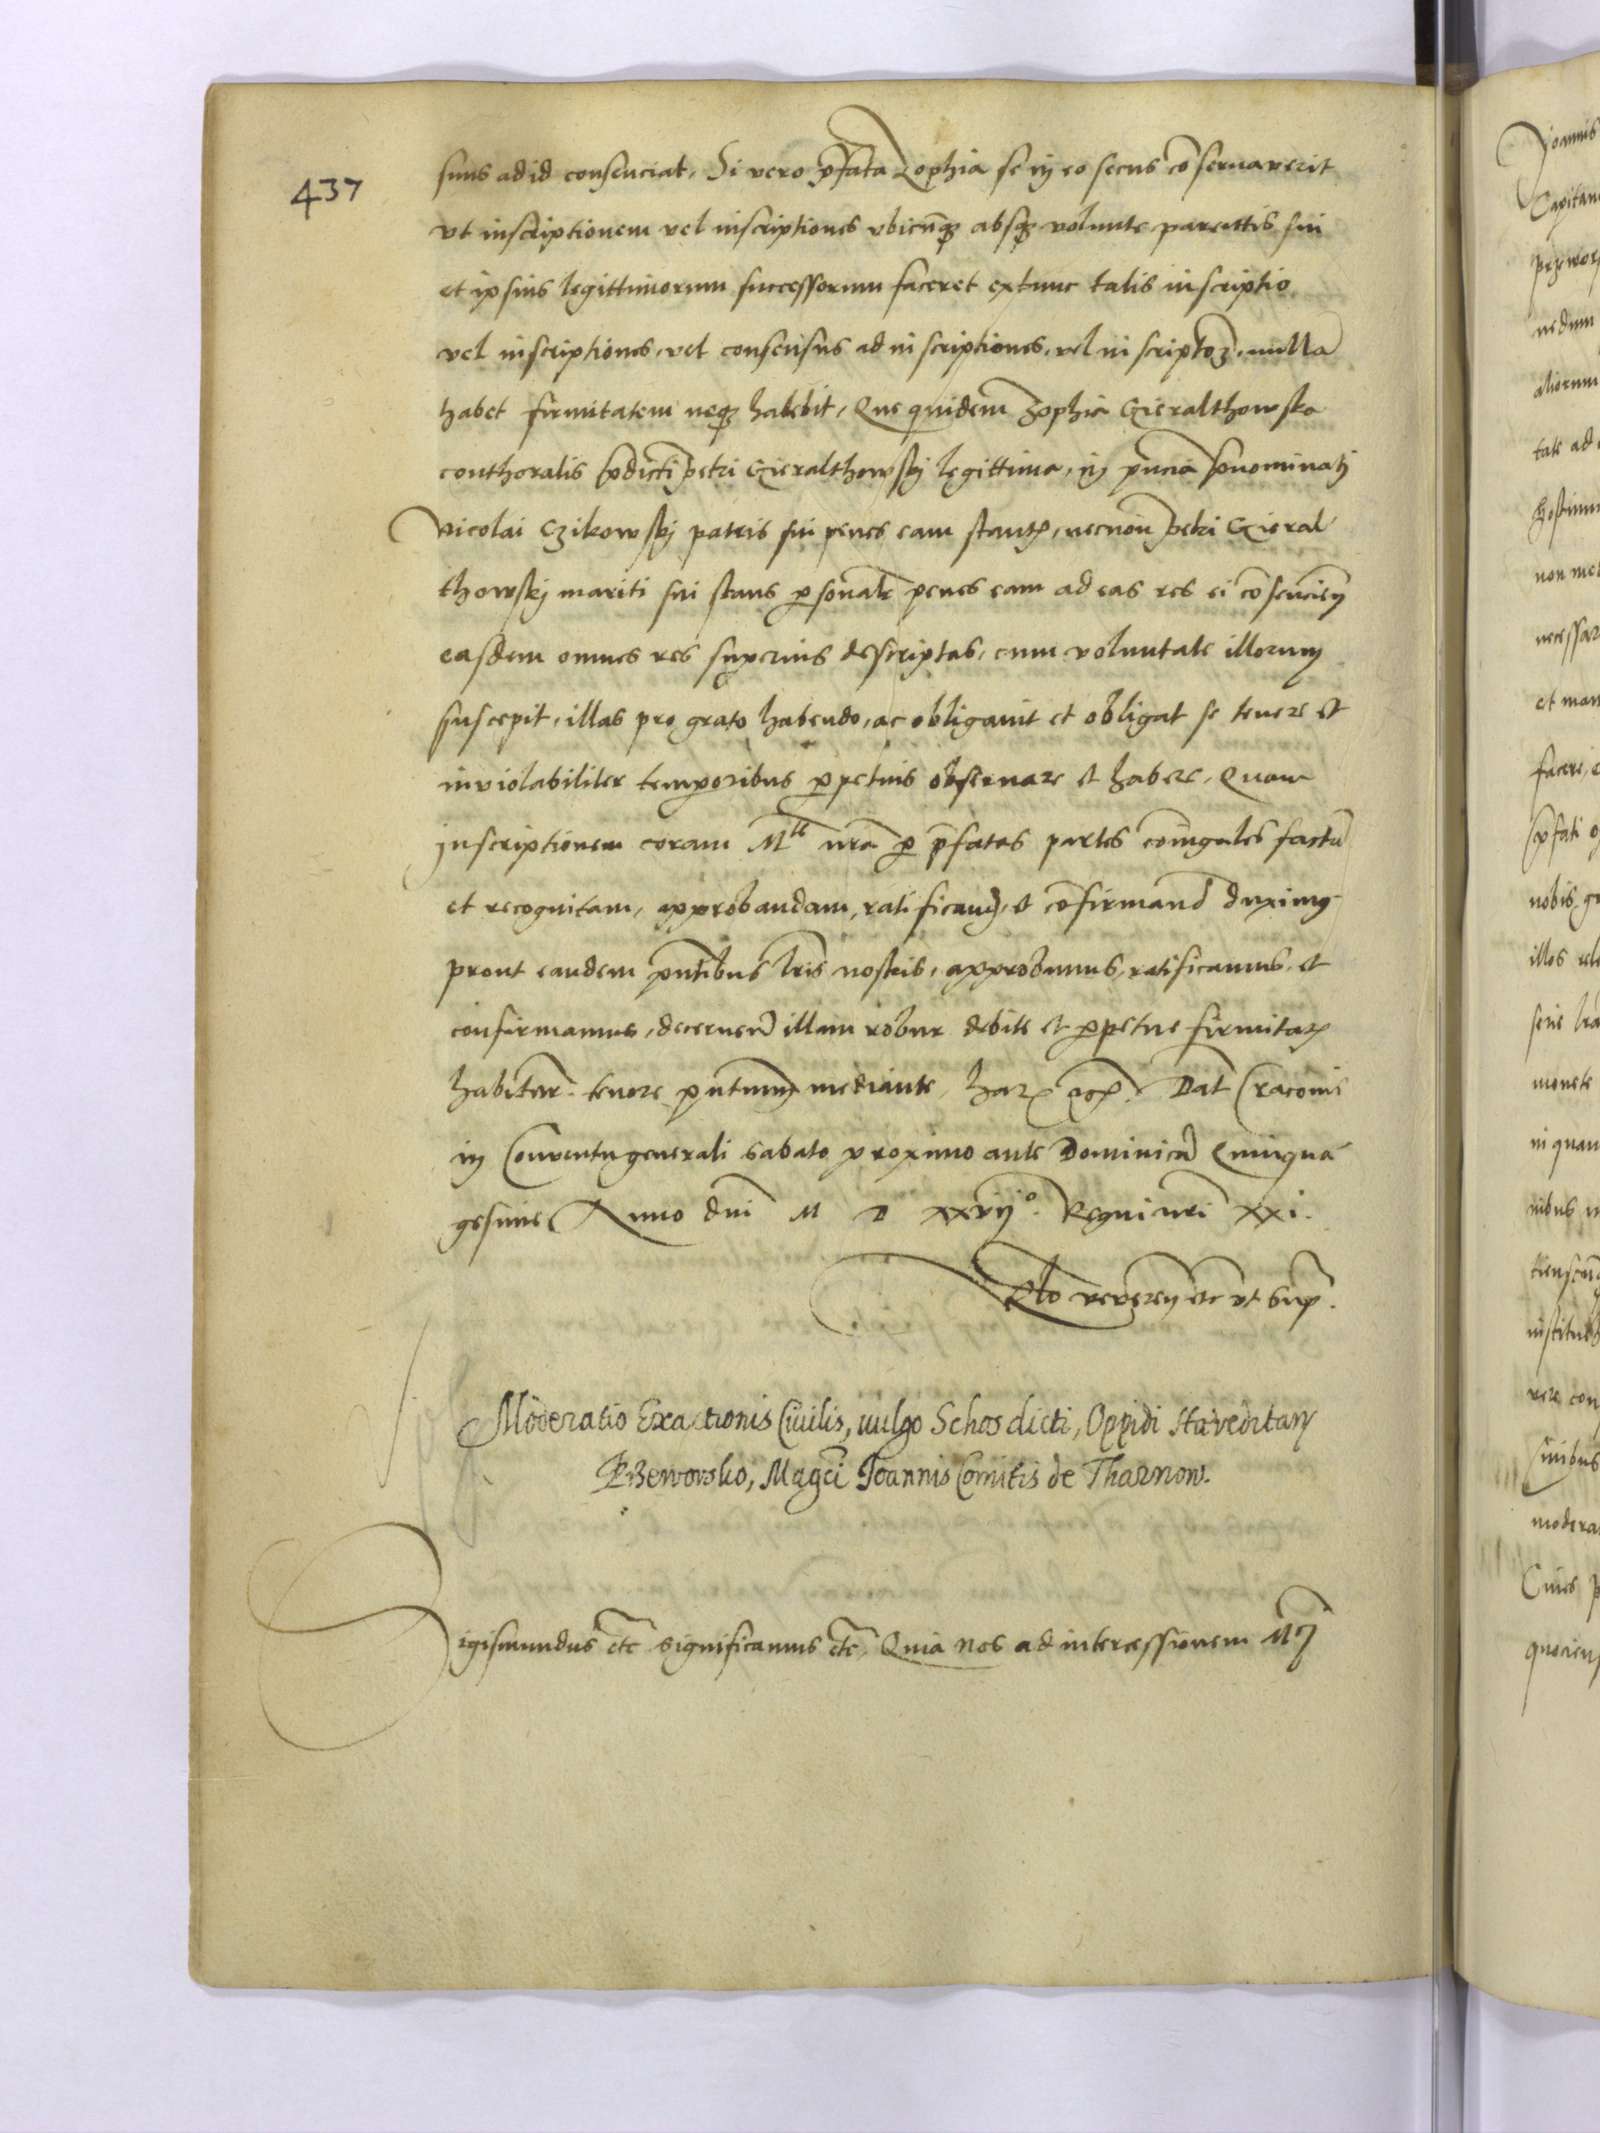 437
suus ad id consenciat, Si vero p̄fata Zophia se in eo secus cōservaverit
vt inscriptionem vel inscriptiones vbicūqȝ absqȝ volunte parentis sui
et ipsius legittimorum successorum faceret extunc talis inscriptio
vel inscriptiones, vel consensus ad inscriptiones, vel inscriptoȝ, nullā
habet firmitatem neqȝ habebit, Que quidem Zophia Gieralthowska
conthoralis p̄dicti Petri Gieralthowskj legittima, in p̄ncia p̄nominatj
Nicolai Czikowskj patris sui penes eam stantꝭ, necnon Petri Gieral
thowskj mariti sui stans ꝑsonalr̄ penes eam ad eas res ei cōsencien̄
easdem omnes res superius descriptas, cum voluntate illorum
suscepit, illas pro grato habendo, ac obligavit et obligat se tenere et
inviolabiliter temporibus ꝑpetuis observare et habere, Quam
inscriptionem coram Mte nrā ꝑ p̄fatas partes coniugales factā
et recognitam, approbandam, ratificand, et cōfirmand duximꝰ
prout eandem p̄ntibus lr̄is nostris, approbamus, ratificamus, et
confirmamus, decernen̄ illam robur debite et ꝑpetue firmitatꝭ
habiturā. tenore p̄ntium mediante, harꝭ Dat Cracovie
in Conventu generali sabato proximo ante Dominicā Quinqua
gesime Anno dn̄i M D xxvijº. Regni nr̄i xxi.
Rlo reveren etc vt supꝭ.
Moderatio Exactionis Civilis, vulgo Schos dicti, Oppidi Hæreditarÿ
PRzeworsko, Mag̅ci Joannis Comitis de Tharnow.
Sigismundus etc significamus etc, Quia nos ad intercessionem Mcj